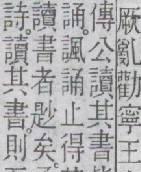 厥亂勸寧王
傳公讀其書
誦。諷誦止得
讀書者尟矣。
詩。讀其書。則